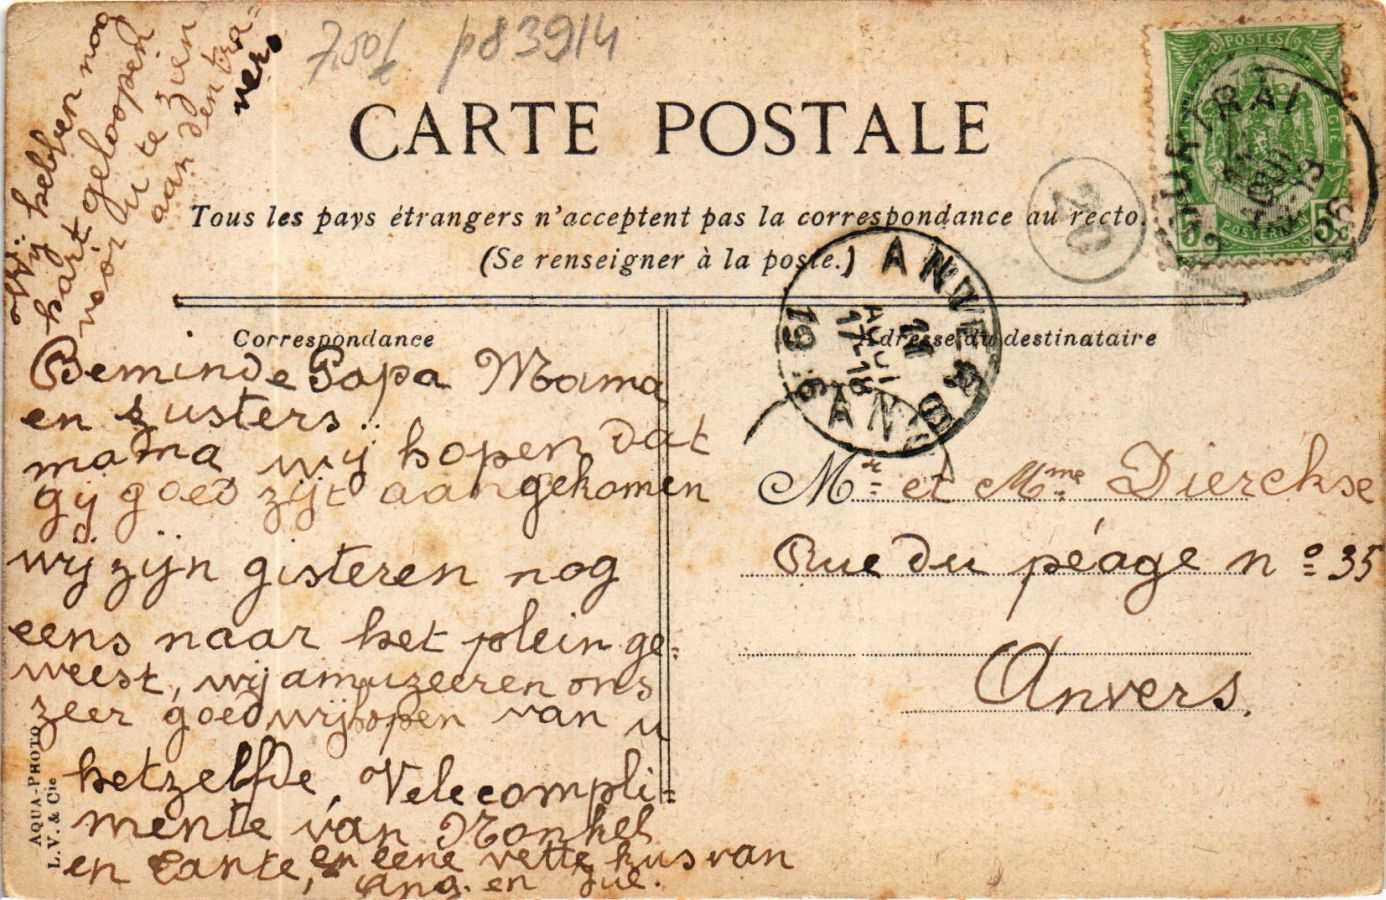 7,50f p83914
CARTE POSTALE
Tous les pays étrangers n'acceptent pas la correspondance au recto.
(Se renseigner à la poste.)
Correspondance
Adresse du destinataire
POSTES
COURTRAI
20
ANVERS
11
AOUT
17-18
19 6
ANV
Beminde Papa Mama
en zusters
mama wij hopen dat
gij goed zijt aangekomen
wij zijn gisteren nog
eens naar het plein ge-
weest, wij amuzeeren ons
zeer goed wij hopen van u
hetzelfde, Vele compli-
mente van Nonkel
en Tante, en eene vette kus van
Ang. en Jul.
Wij hebben nog
hart geloopen
voor u te zien
aan den tra-
vers
Mr et Mme Dierckse
Rue du péage no 35
Anvers.
AQUA-PHOTO
L. V. & Cie